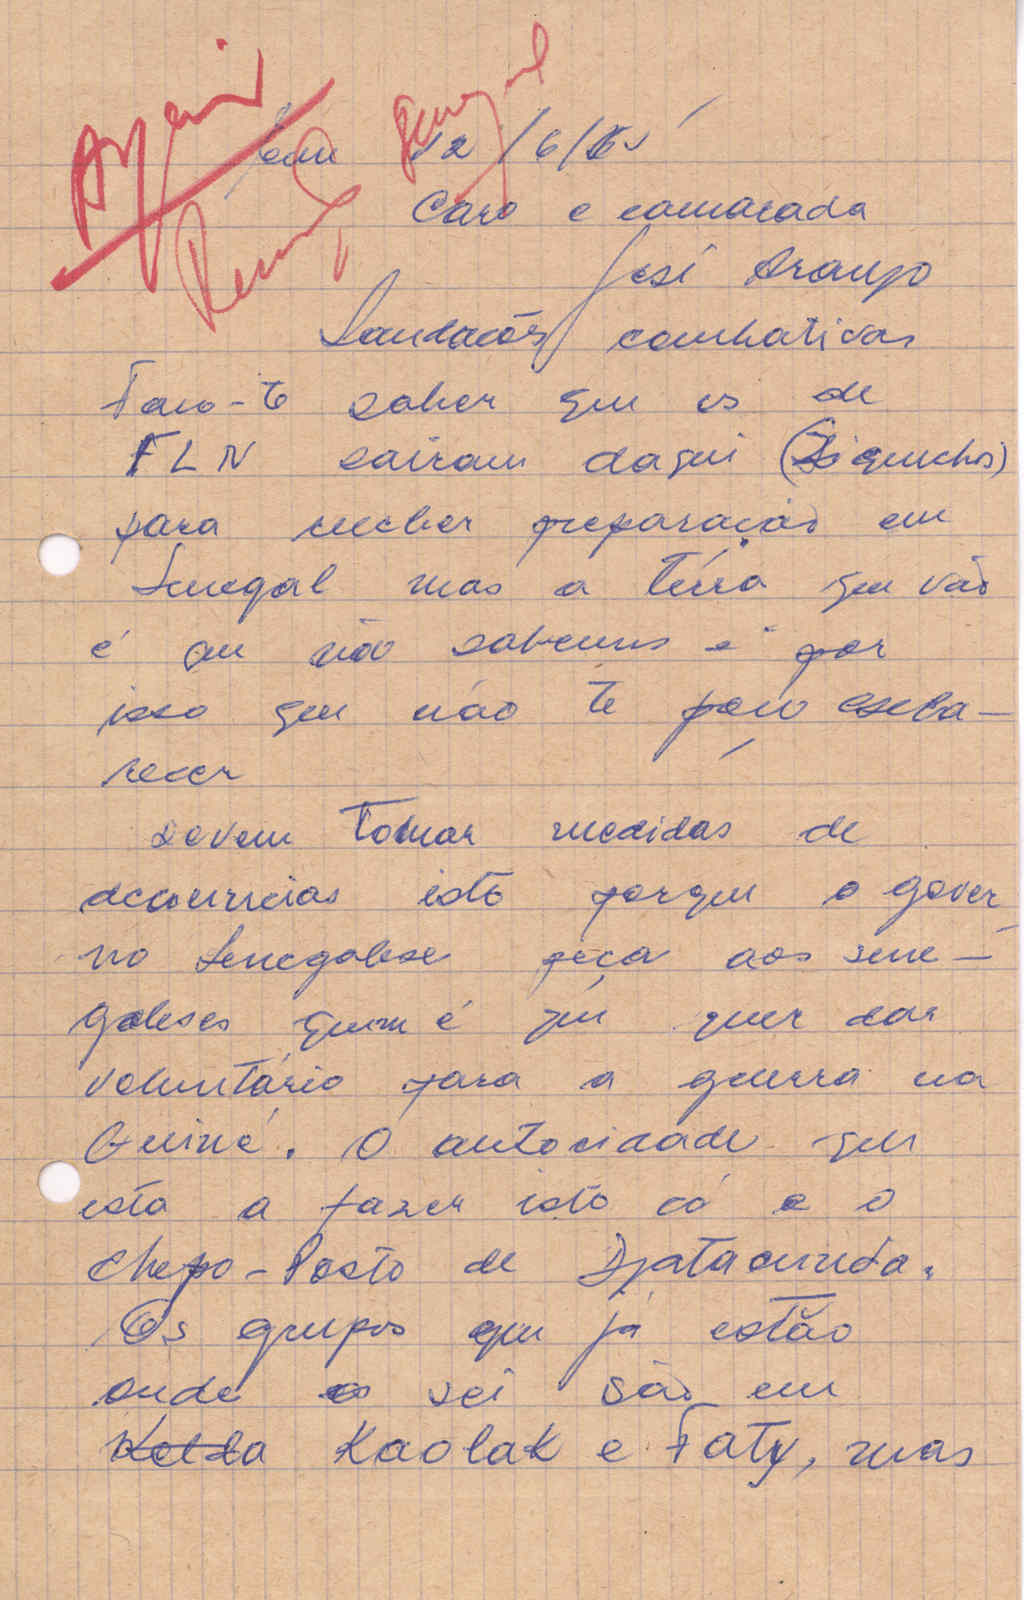 em 12/6/65
Caro e camarada
José Araujo
Saudacões combativas
Faco-te saber que os de
FLN sairam daqui (Ziguichos)
para receber preparacão em
Senegal mas a térra que vão
é que não sabemos e por
isso que não te poço escla-
recer
devem tomar medidas de
istō porque o gover
no senegalese peça aos sene-
galeses quem é que quer dar
voluntário para a guerra na
Guiné. O autoridade que
esta a fazer isto cá e o
chefo-Posto de Djatacunda.
Os grupos que já estão
onde sei são em
Kolda Kaolak e Faty, mas